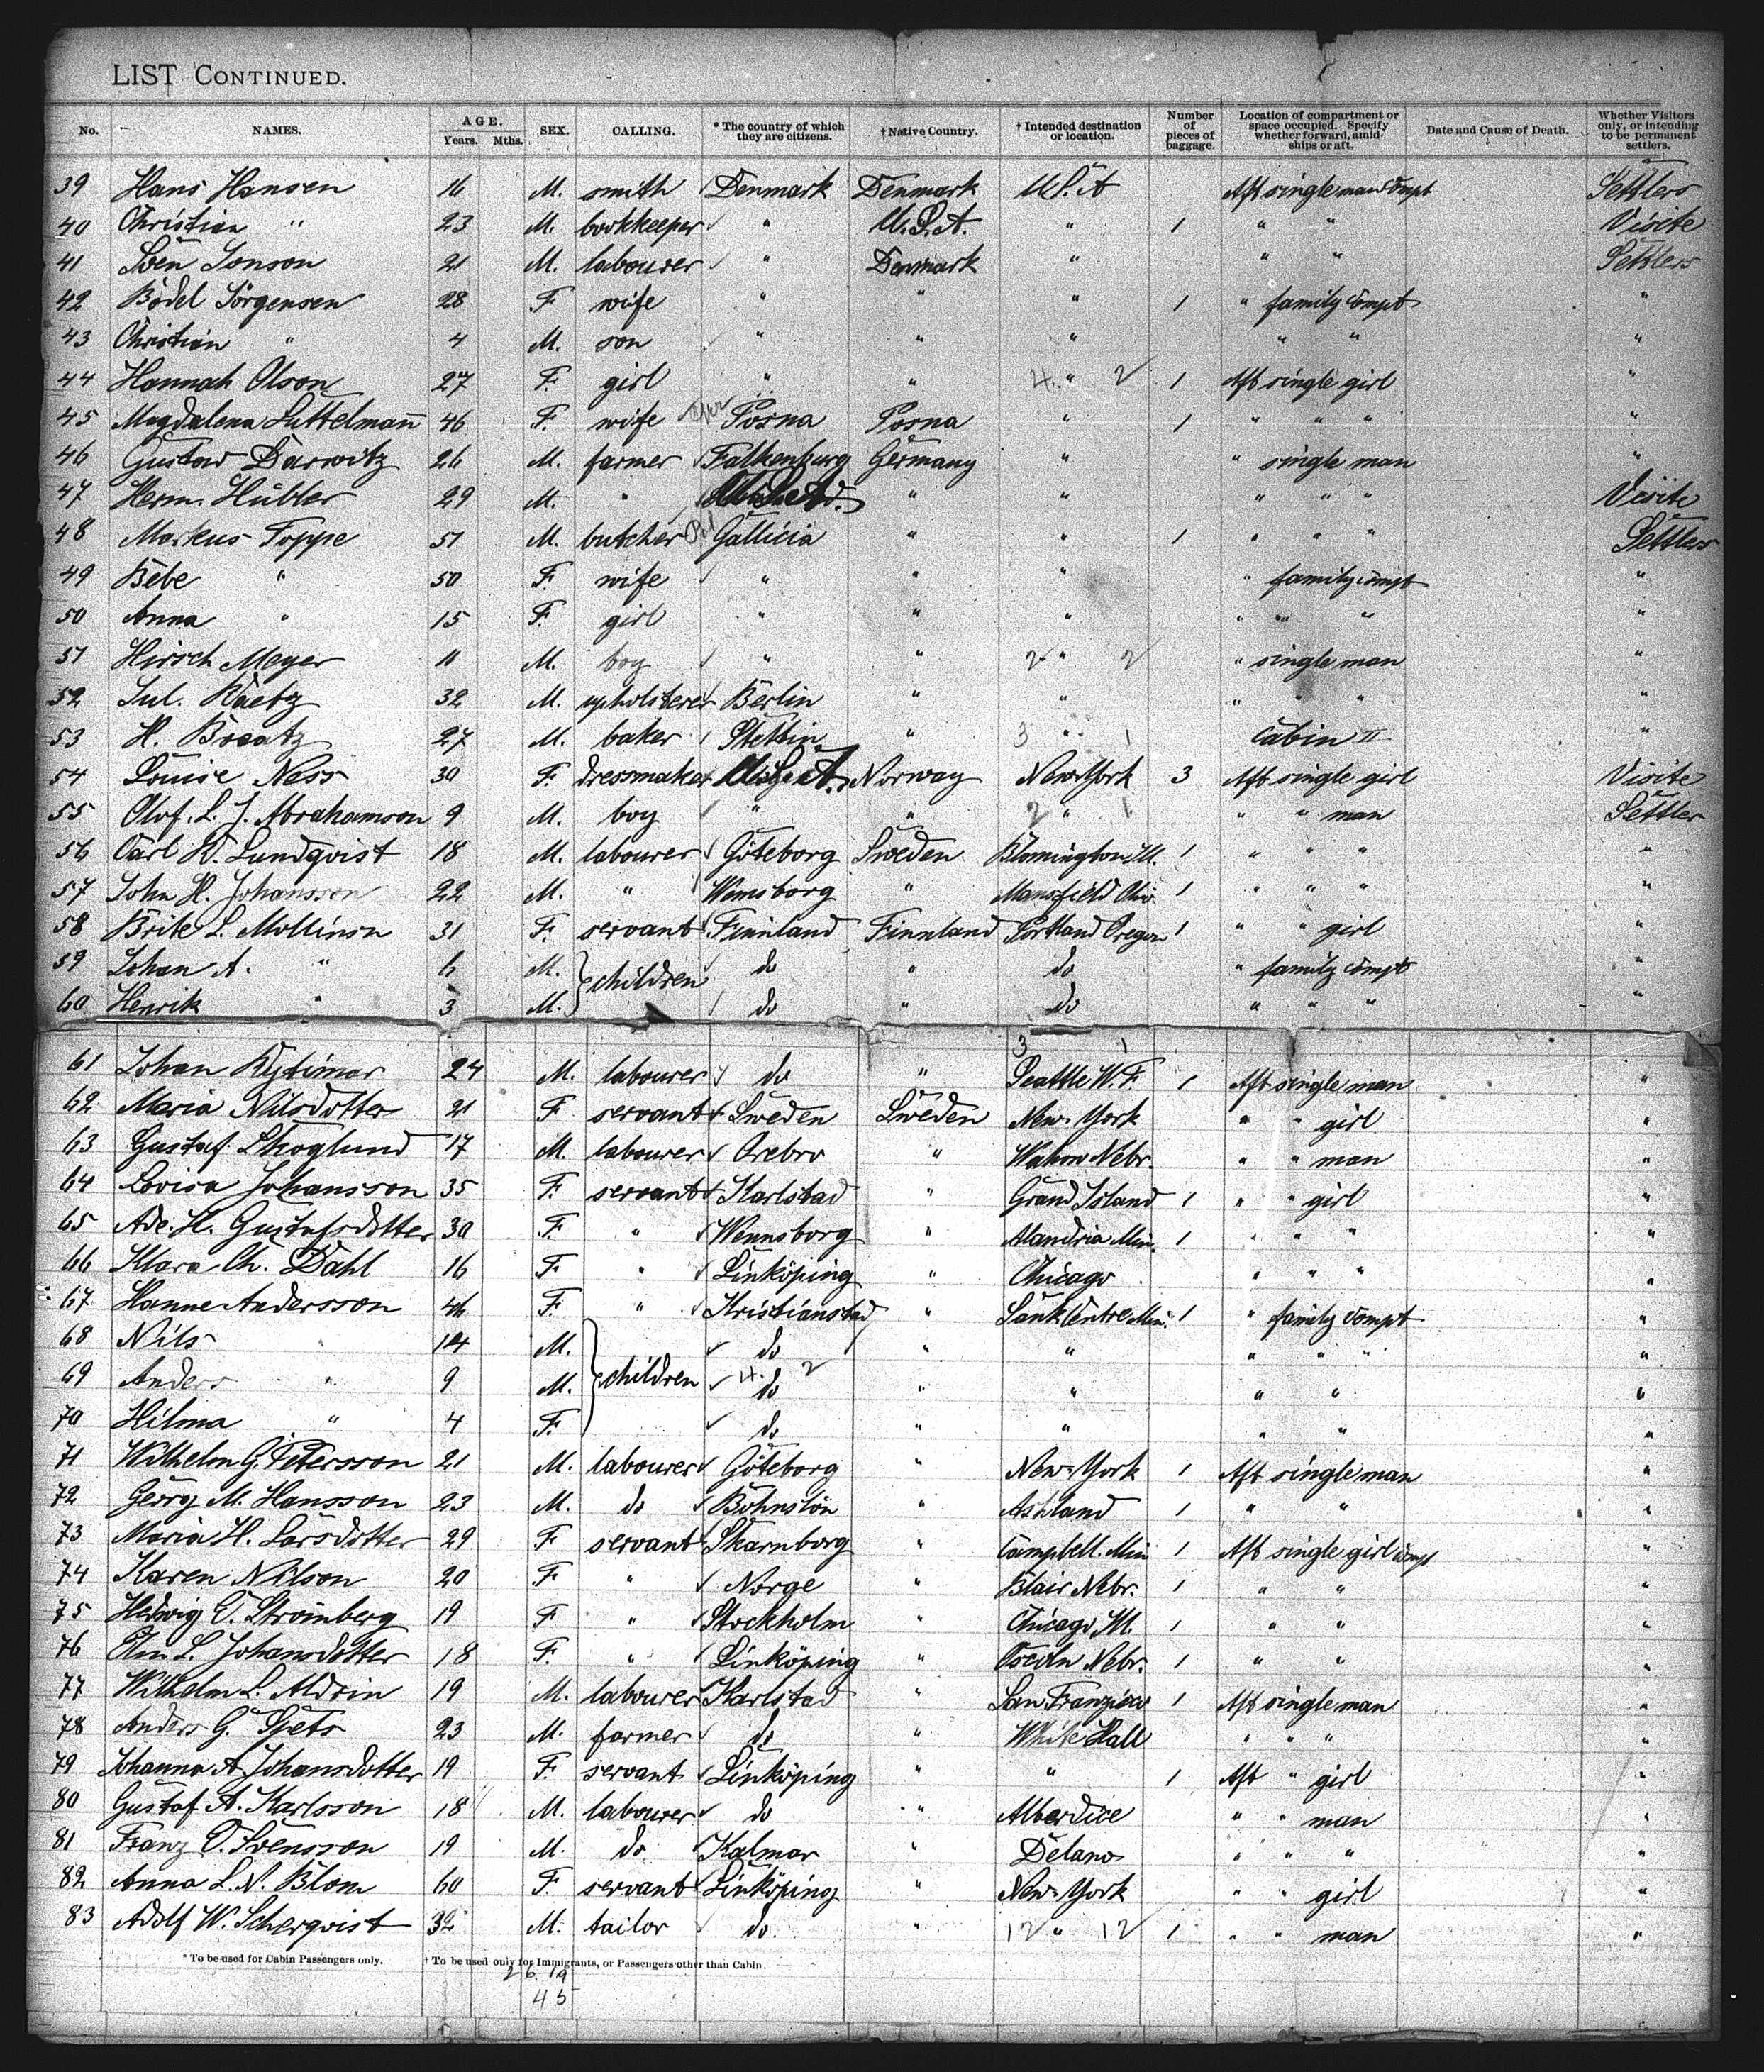 LIST CONTINUED.
No. NAMES. AGE. Years. Mths. SEX. CALLING. * The country of which they are citizens. † Native Country. † Intended destination or location. Number of pieces of baggage. Location of compartment or space occupied. Specify whether forward, amidships or aft. Date and Cause of Death. Whether Visitors only, or intending to be permanent settlers.
39 Hans Hansen 16 M. smith Denmark Denmark U.S.A Aft single man compt Settlers
40 Christian " 23 M. bookkeeper " U.S.A. " 1 " " Visite
41 Sven Jonson 21 M. labourer " Denmark " " " Settlers
42 Bodel Jörgensen 28 F wife " " " 1 " family compt "
43 Christian " 4 M. son " " " " " "
44 Hannah Olson 27 F. girl " " 4 " 2 1 Aft single girl "
45 Magdalena Luttelmann 46 F. wife Posna Posna " 1 " " " "
46 Gustav Darwitz 26 M. farmer Falkenburg Germany " " single man "
47 Herm. Hübler 29 M. " " " " " " Visite
48 Markus Toppe 51 M. butcher Gallicia " " 1 " " " Settlers
49 Bebe " 50 F. wife " " " " family compt "
50 Anna " 15 F. girl " " " " " " "
51 Hirsch Meyer 11 M. boy " " 2 " 2 " single man "
52 Jul. Raetz 32 M. upholsterer Berlin " " " " "
53 H. Broatz 27 M. baker Stettin " 3 " 1 Cabin II "
54 Louise Ness 30 F. dressmaker U.S.A. Norway New York 3 Aft single girl Visite
55 Olof. L. J. Abrahamson 9 M. boy " " 2 " 1 " " man Settler
56 Carl W. Lundqvist 18 M. labourer Göteborg Sweden Blomington Ill. 1 " " " "
57 John H. Johansson 22 M. " Wemsborg " Mansfield Ohio 1 " " " "
58 Brite L. Mollinsn 31 F. servant Finnland Finnland Portland Oregon 1 " " girl "
59 Johan A. " 6 M. children do " do " family compt "
60 Henrik " 3 M. do " do " " " "
3 1
61 Johan Kytimar 24 M. labourer do " Seattle W.T. 1 Aft single man "
62 Maria Nilsdotter 21 F servant Sweden Sweden New York " " girl "
63 Gustaf Skoglund 17 M. labourer Orebro " Wahow Nebr. " " man "
64 Lovisa Johansson 35 F. servant Karlstad " Grand Island 1 " " girl "
65 Ade. H. Gustafsdotter 30 F. " Wennsborg " Alandria Min. 1 " " " "
66 Klara Ch. Dahl 16 F " Linköping " Chicago " " " "
67 Hanne Andersson 46 F. " Kristianstad " Sank Centre Min. 1 " family compt "
68 Nils " 14 M. children do " " " " " "
69 Anders " 9 M. 4. do 2 " " " " "
70 Hilma " 4 F. do " " " " "
71 Wilhelm G. Petersson 21 M. labourer Göteborg " New York 1 Aft single man "
72 Georg M. Hansson 23 M. do Bohnslön " Ashland 1 " " "
73 Maria H. Larsdotter 29 F servant Skarnborg " Campbell. Min 1 Aft single girl compt "
74 Karen Nilson 20 F " Norge " Blair Nebr. 1 " " "
75 Hedvig C. Stromberg 19 F " Stockholm " Chicago Ill. 1 " " "
76 L. Johansdotter 18 F. " Linköping " Nebr. 1 " " "
77 Wilhelm L. Aldrin 19 M. labourer Karlstad " San Franzisco 1 Aft single man "
78 Anders G. Spets 23 M. farmer do " White Hall " " " "
79 Johanna A. Johansdotter 19 F. servant Linköping " " 1 Aft " girl "
80 Gustaf A. Karlsson 18 M. labourer do " Alberdice " " man "
81 Franz O. Svensson 19 M. do Kalmar " Delano " " " "
82 Anna L. N. Blom 60 F. servant Linköping " New York " " girl "
83 Adolf W. Scherqvist 32 M. tailor do. " 12 " 12 1 " " man "
* To be used for Cabin Passengers only. † To be used only for Immigrants, or Passengers other than Cabin.
26 19
45